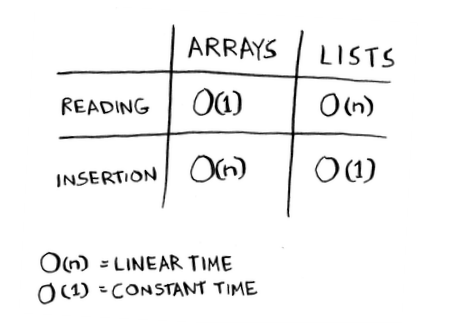 ARRAYS LISTS
READING O(1) O(n)
INSERTION O(n) O(1)
O(n) = LINEAR TIME
O(1) = CONSTANT TIME